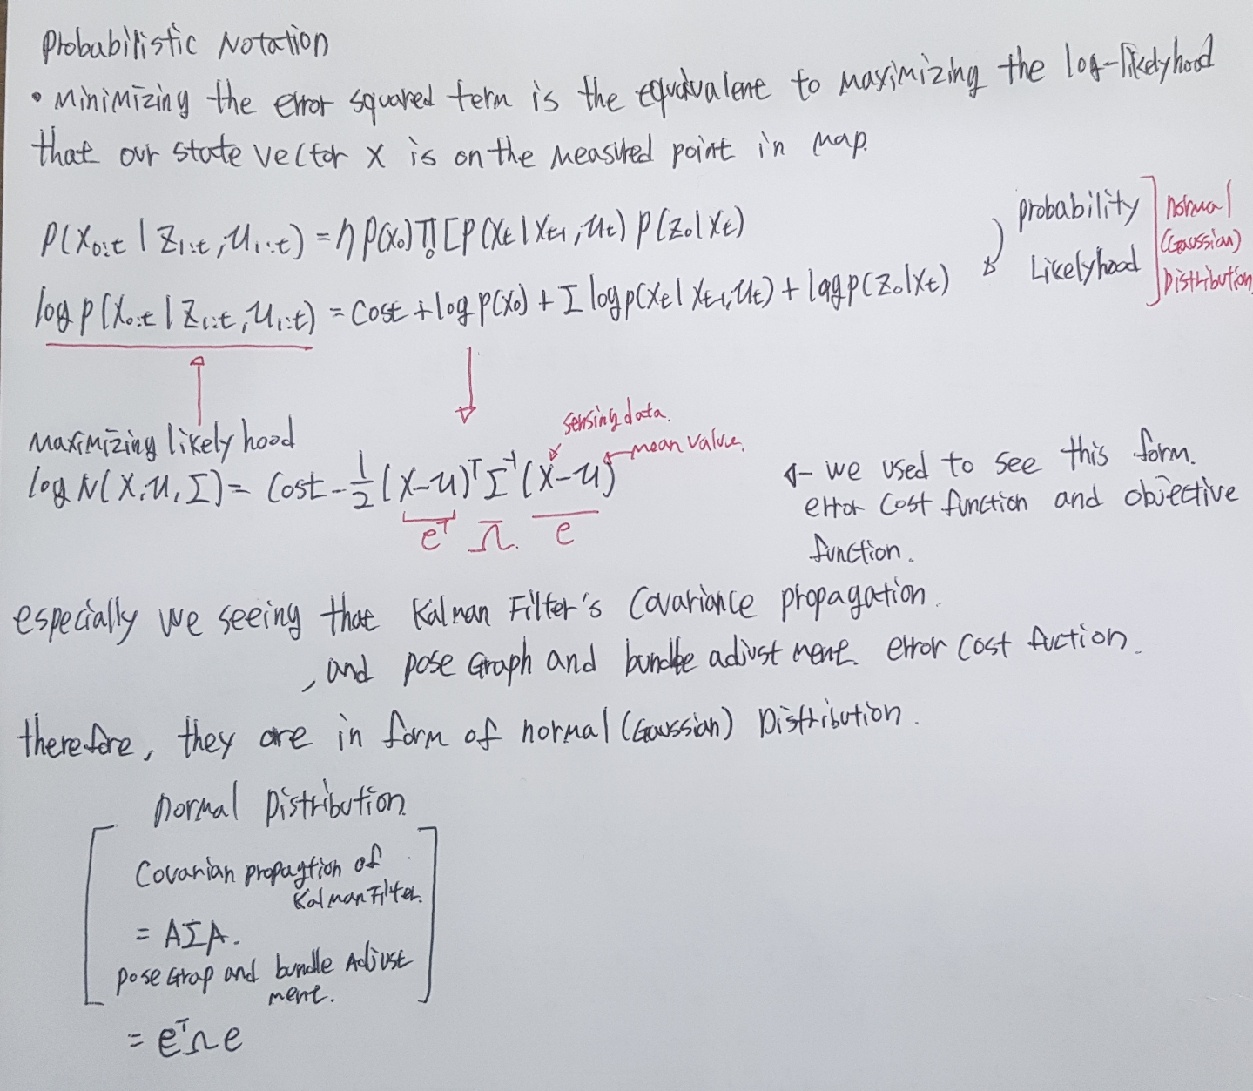 Probabilistic Notation
• Minimizing the error squared term is the equivalent to Maximizing the log-likelyhood
that our state vector x is on the measured point in map.
P(X₀:t | Z₁:t, U₁:t) = η P(X₀) Π [P(Xt | Xt-1, Ut) P(Z₀|Xt)
probability
Likelyhood
normal
(Gaussian)
Distribution
log P(X₀:t | Z₁:t, U₁:t) = Cost + log P(X₀) + Σ log p(Xt | Xt-1, Ut) + log p(Z₀|Xt)
sensing data.
mean value.
Maximizing likely hood
log N(X, u, Σ) = Cost - 1/2 (X-u)ᵀ Σ⁻¹ (X-u)
eᵀ Ω. e
← we used to see this form.
error cost function and objective
function.
especially we seeing that Kalman Filter's Covariance propagation.
, and pose Graph and bundle adjust ment error cost fuction.
therefore, they are in form of normal (Gaussian) Distribution.
normal Distribution
Covarian propagtion of
Kalman Filter.
= AΣA.
pose Grap and bundle Adjust
ment.
= eᵀΩe